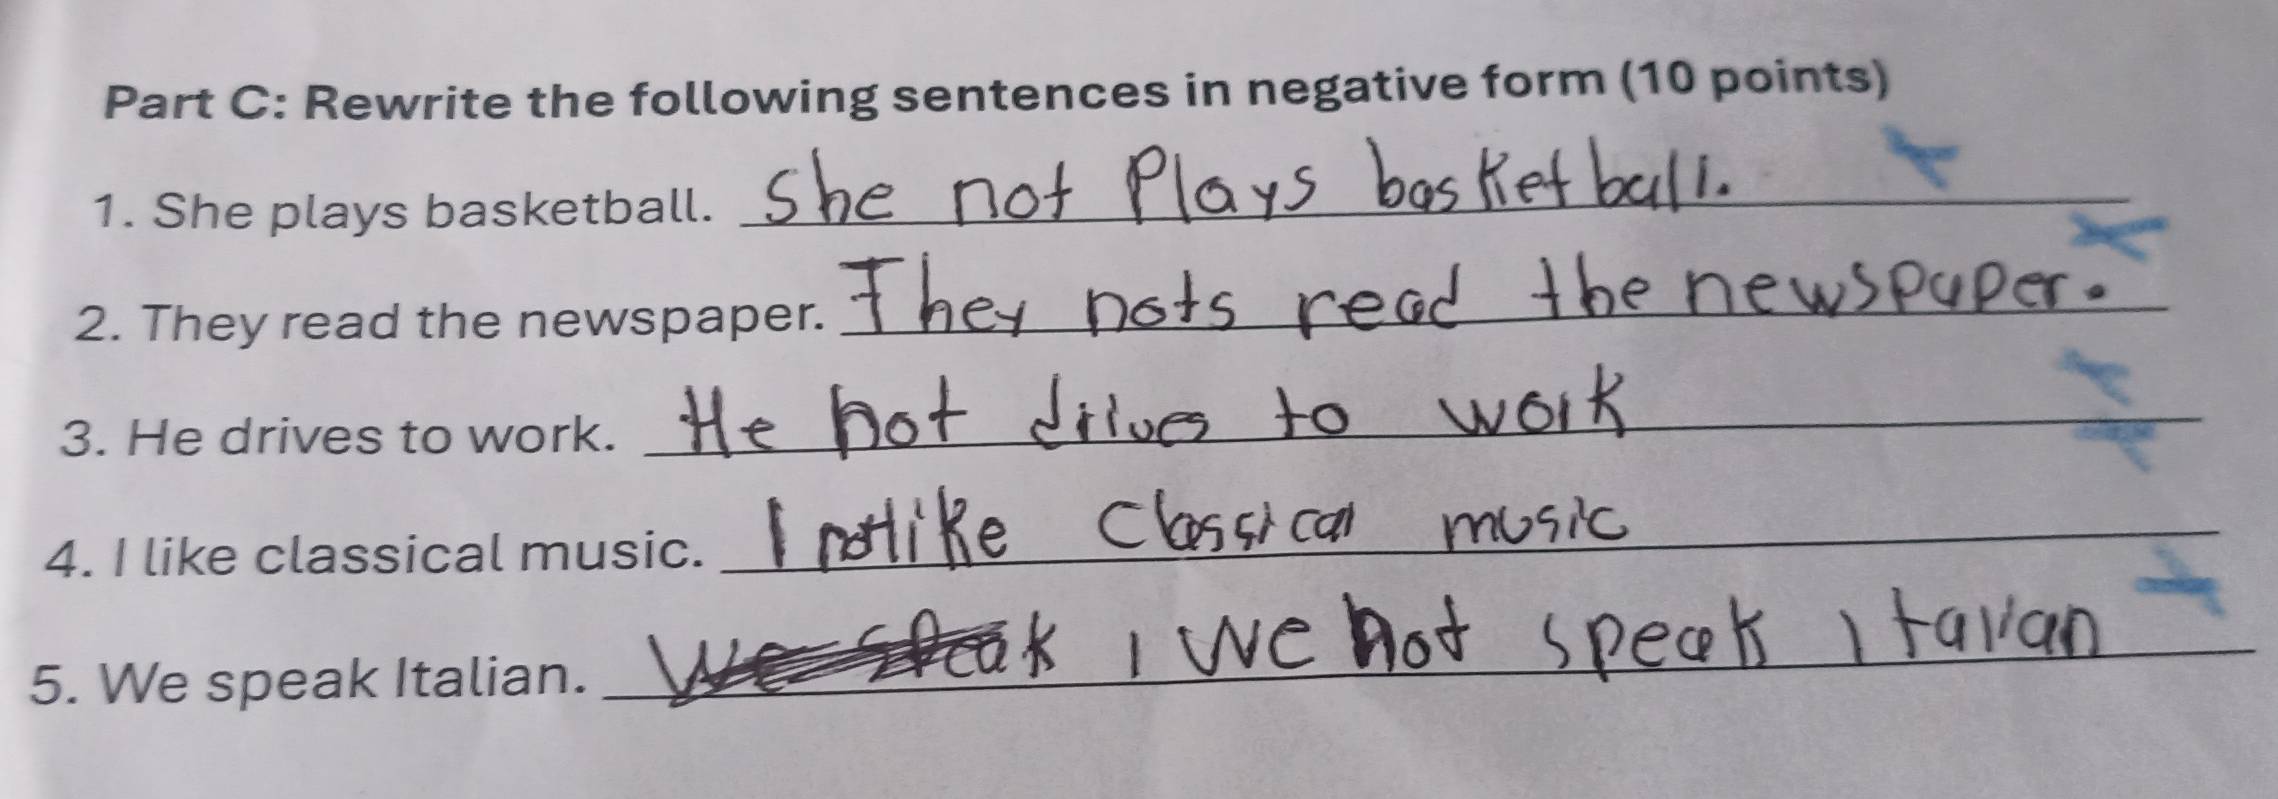 Part C: Rewrite the following sentences in negative form (10 points)
1. She plays basketball. She not Plays basketball.
2. They read the newspaper. They nots read the newspaper.
3. He drives to work. He not drives to work
4. I like classical music. I not like Classical music
5. We speak Italian. We not speak Italian